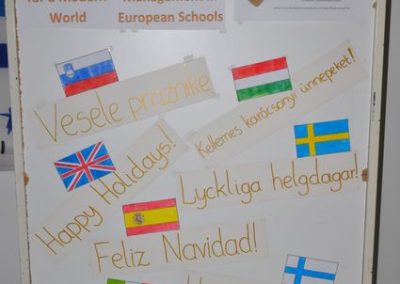 for a Modern
World
Management in
European Schools
Vesele praznike
Kellemes karácsonyi ünnepeket!
Happy Holidays!
Lyckliga helgdagar!
Feliz Navidad!